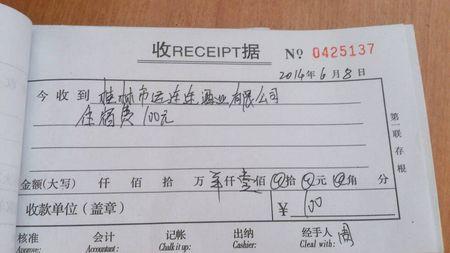 收RECEIPT据 Nº 0425137
2014年6月8日
今收到 桂林市运连连酒业有限公司
住宿费 100元
第一联存根
金额(大写) 仟 佰 拾 万 仟 壹佰 拾 元 角 分
收款单位(盖章) ¥ 100
核准 会计 记帐 出纳 经手人 周
Approve: Accountant: Chalk it up: Cashier: Cleal with: